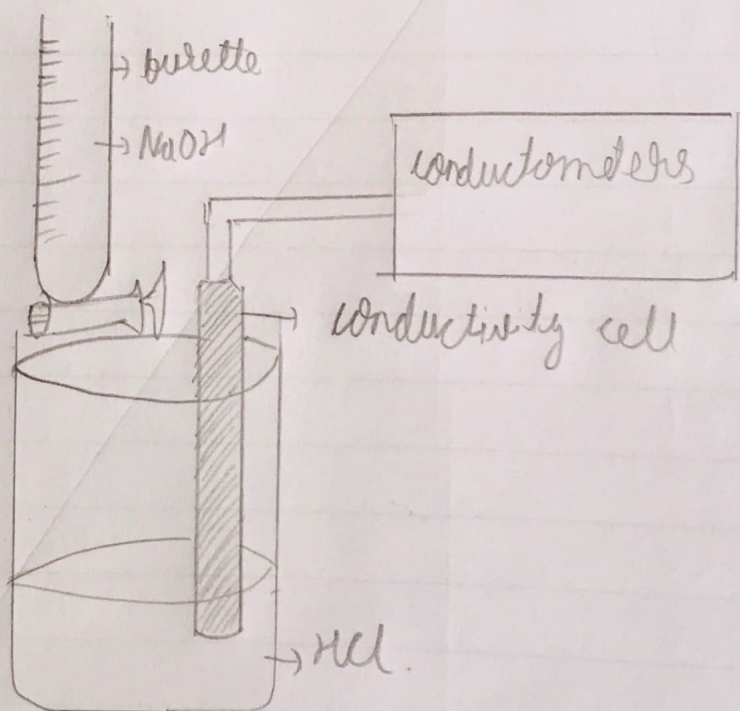 burette
NaOH
conductometers
conductivity cell
HCl.